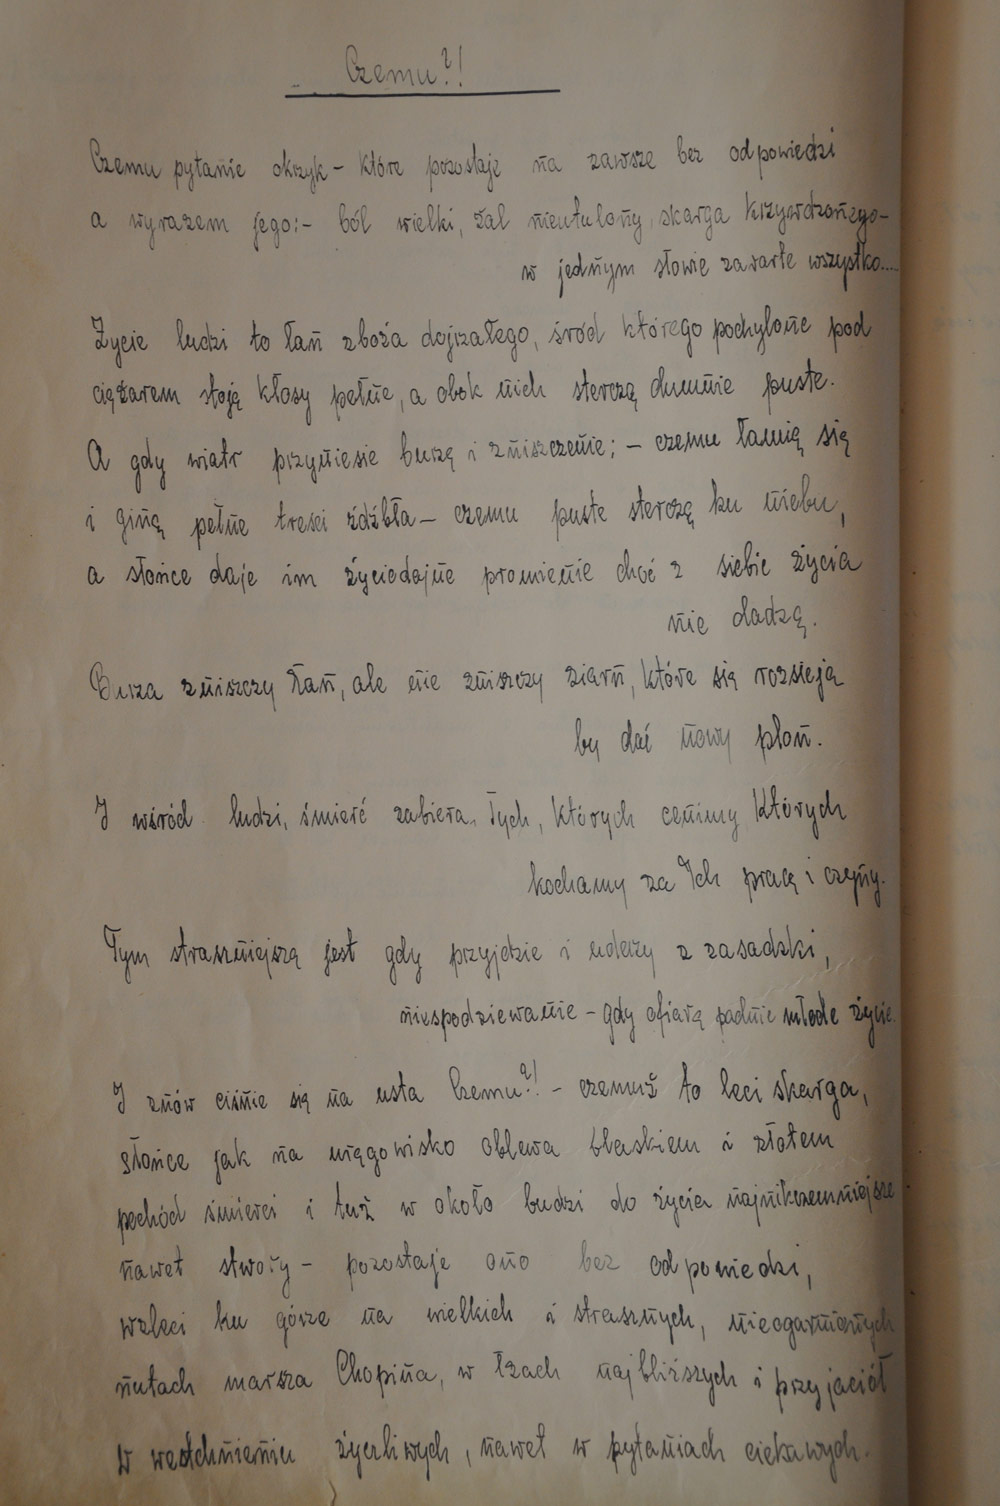 Czemu?!
Czemu pytanie okrzyk – które pozostaje na zawsze bez odpowiedzi
a wyrazem jego:- ból wielki, żal nieutulony, skarga krzywdzonego-
w jednym słowie zawarte wszystko....
Życie ludzi to łan zboża dojrzałego, śród którego pochylone pod
ciężarem stoją kłosy pełne, a obok nich sterczą dumnie puste.
A gdy wiatr przyniesie burzę i zniszczenie; – czemu łamią się
i giną pełne treści źdźbła – czemu puste sterczą ku niebu,
a słońce daje im życiodajne promienie choć z siebie życia
nie dadzą.
Burza zniszczy łan, ale nie zniszczy ziarn, które się rozsieją
by dać nowy plon.
I wśród ludzi, śmierć zabiera Tych, których cenimy których
kochamy za Ich pracę i czyny.
Tym straszniejszą jest gdy przyjdzie i uderzy z zasadzki,
niespodziewanie – gdy ofiarą padnie młode życie.
I znów ciśnie się na usta Czemu?! – czemuż to leci skarga,
słońce jak na urągowisko oblewa blaskiem i złotem
pochód śmierci i tuż w około budzi do życia najnikczemniejsze
nawet stwory – pozostaje ono bez odpowiedzi,
wzleci ku górze na wielkich i strasznych, nieogarnionych
nutach marsza Chopina, w łzach najbliższych i przyjaciół
w westchnieniu życzliwych, nawet w pytaniach ciekawych.